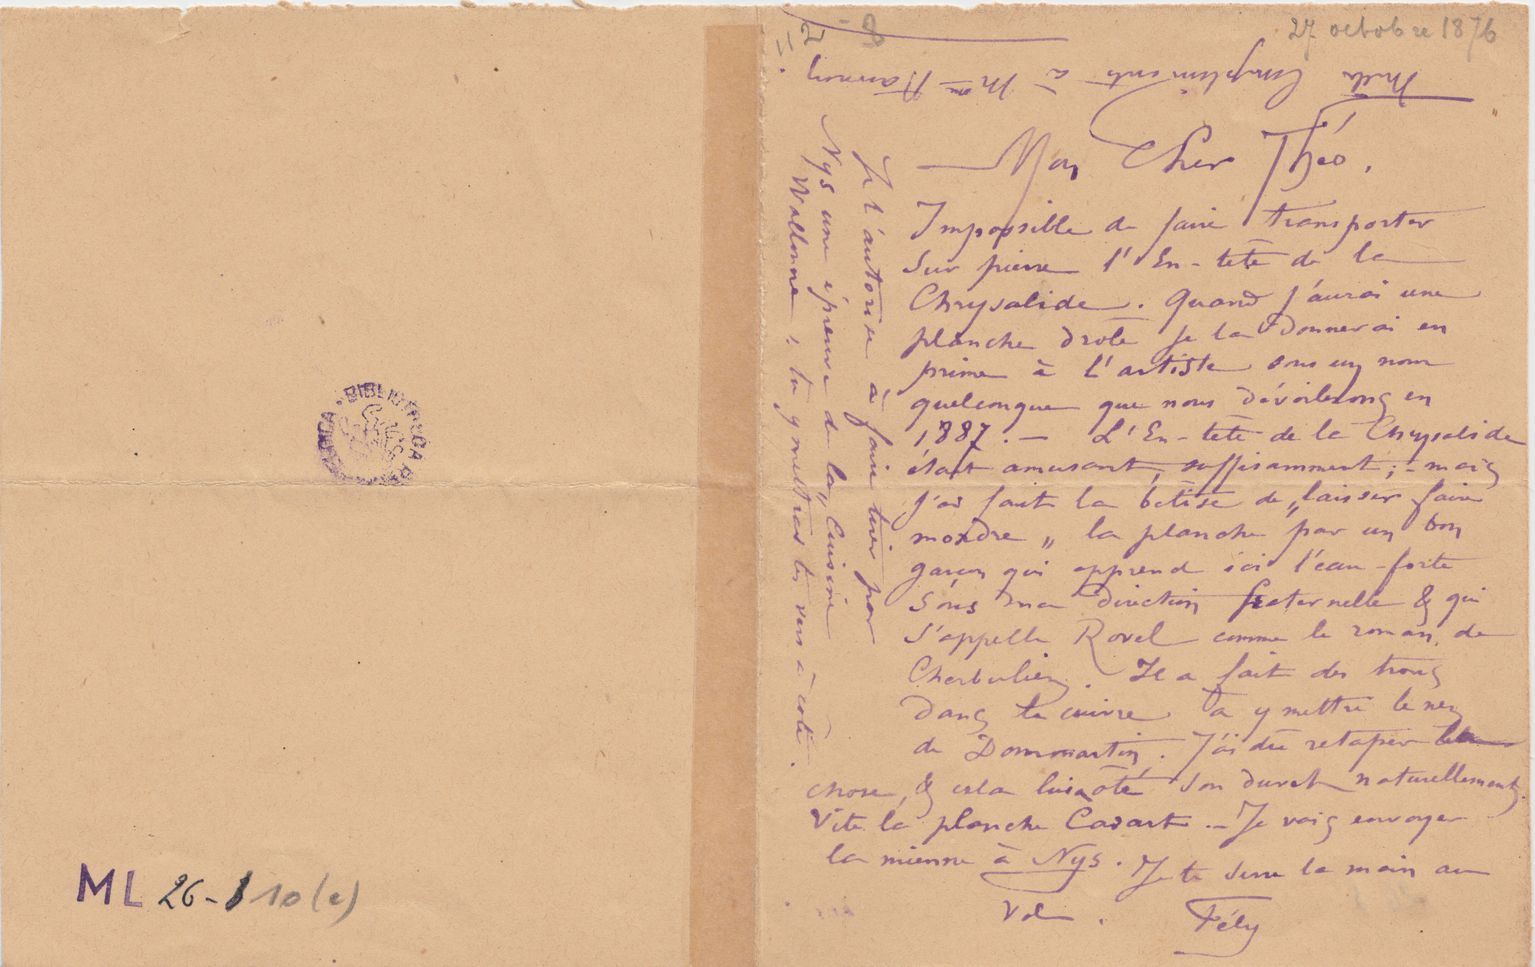 27 octobre 1876
Mon Cher Théo.
Impossible de faire transporter
Sur pierre l'En-tête de la
Chrysalide. Quand j'aurai une
planche drole je la donnerai en
prime à L'artiste sous un nom
quelconque que nous dévoilerons en
1887. — L'En-tête de la Chrysalide
était amusant, suffisamment; - mais
j'ai fait la bêtise de „laisser faire
mordre „ la planche par un bon
garçon qui apprend ici l'eau-forte
sous ma direction fraternelle & qui
s'appelle Rovel comme le roman de
Cherbuliez. Il a fait des trous
dans le cuivre à y mettre le nez
de Dommartin. J'ai dû retaper la
chose, & cela lui a ôté son duvet naturellement.
Vite la planche Cadart. — Je vais envoyer
la mienne à Nys. Je te serre la main au
vol.
Fély
Je t'autorise à faire tirer par
Nys une épreuve de la „ Cuisine
Wallonne ; tu y mettras tes vers à côté.
Mille Compliments à Mme Hannon
2
8
BIBLIOTHECA REGIA BELGICA
ML 26-8 10 (e)